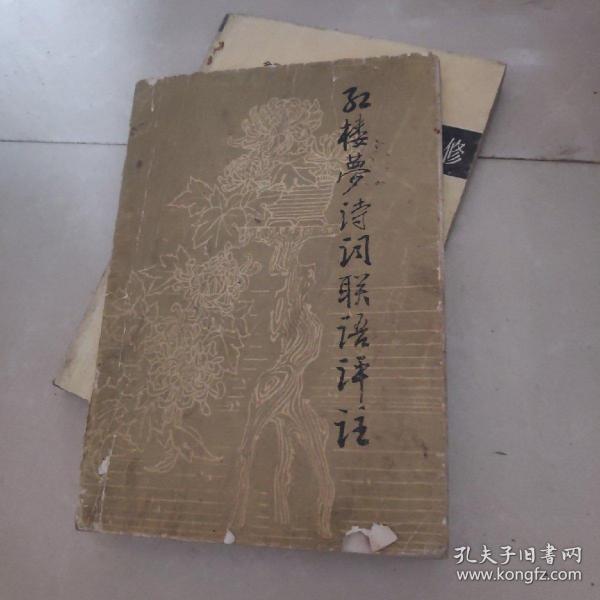 红楼夢诗词联语评註
修
孔夫子旧书网
www.kongfz.com